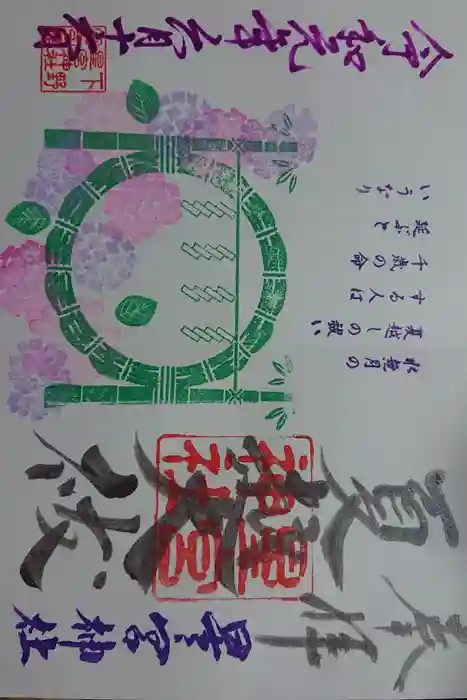 奉拝
星宮神社
夏大祓
星宮
神社
水無月の
夏越しの祓い
する人は
千歳の命
延ぶと
いうなり
令和元年六月十六日
下野
星宮神社